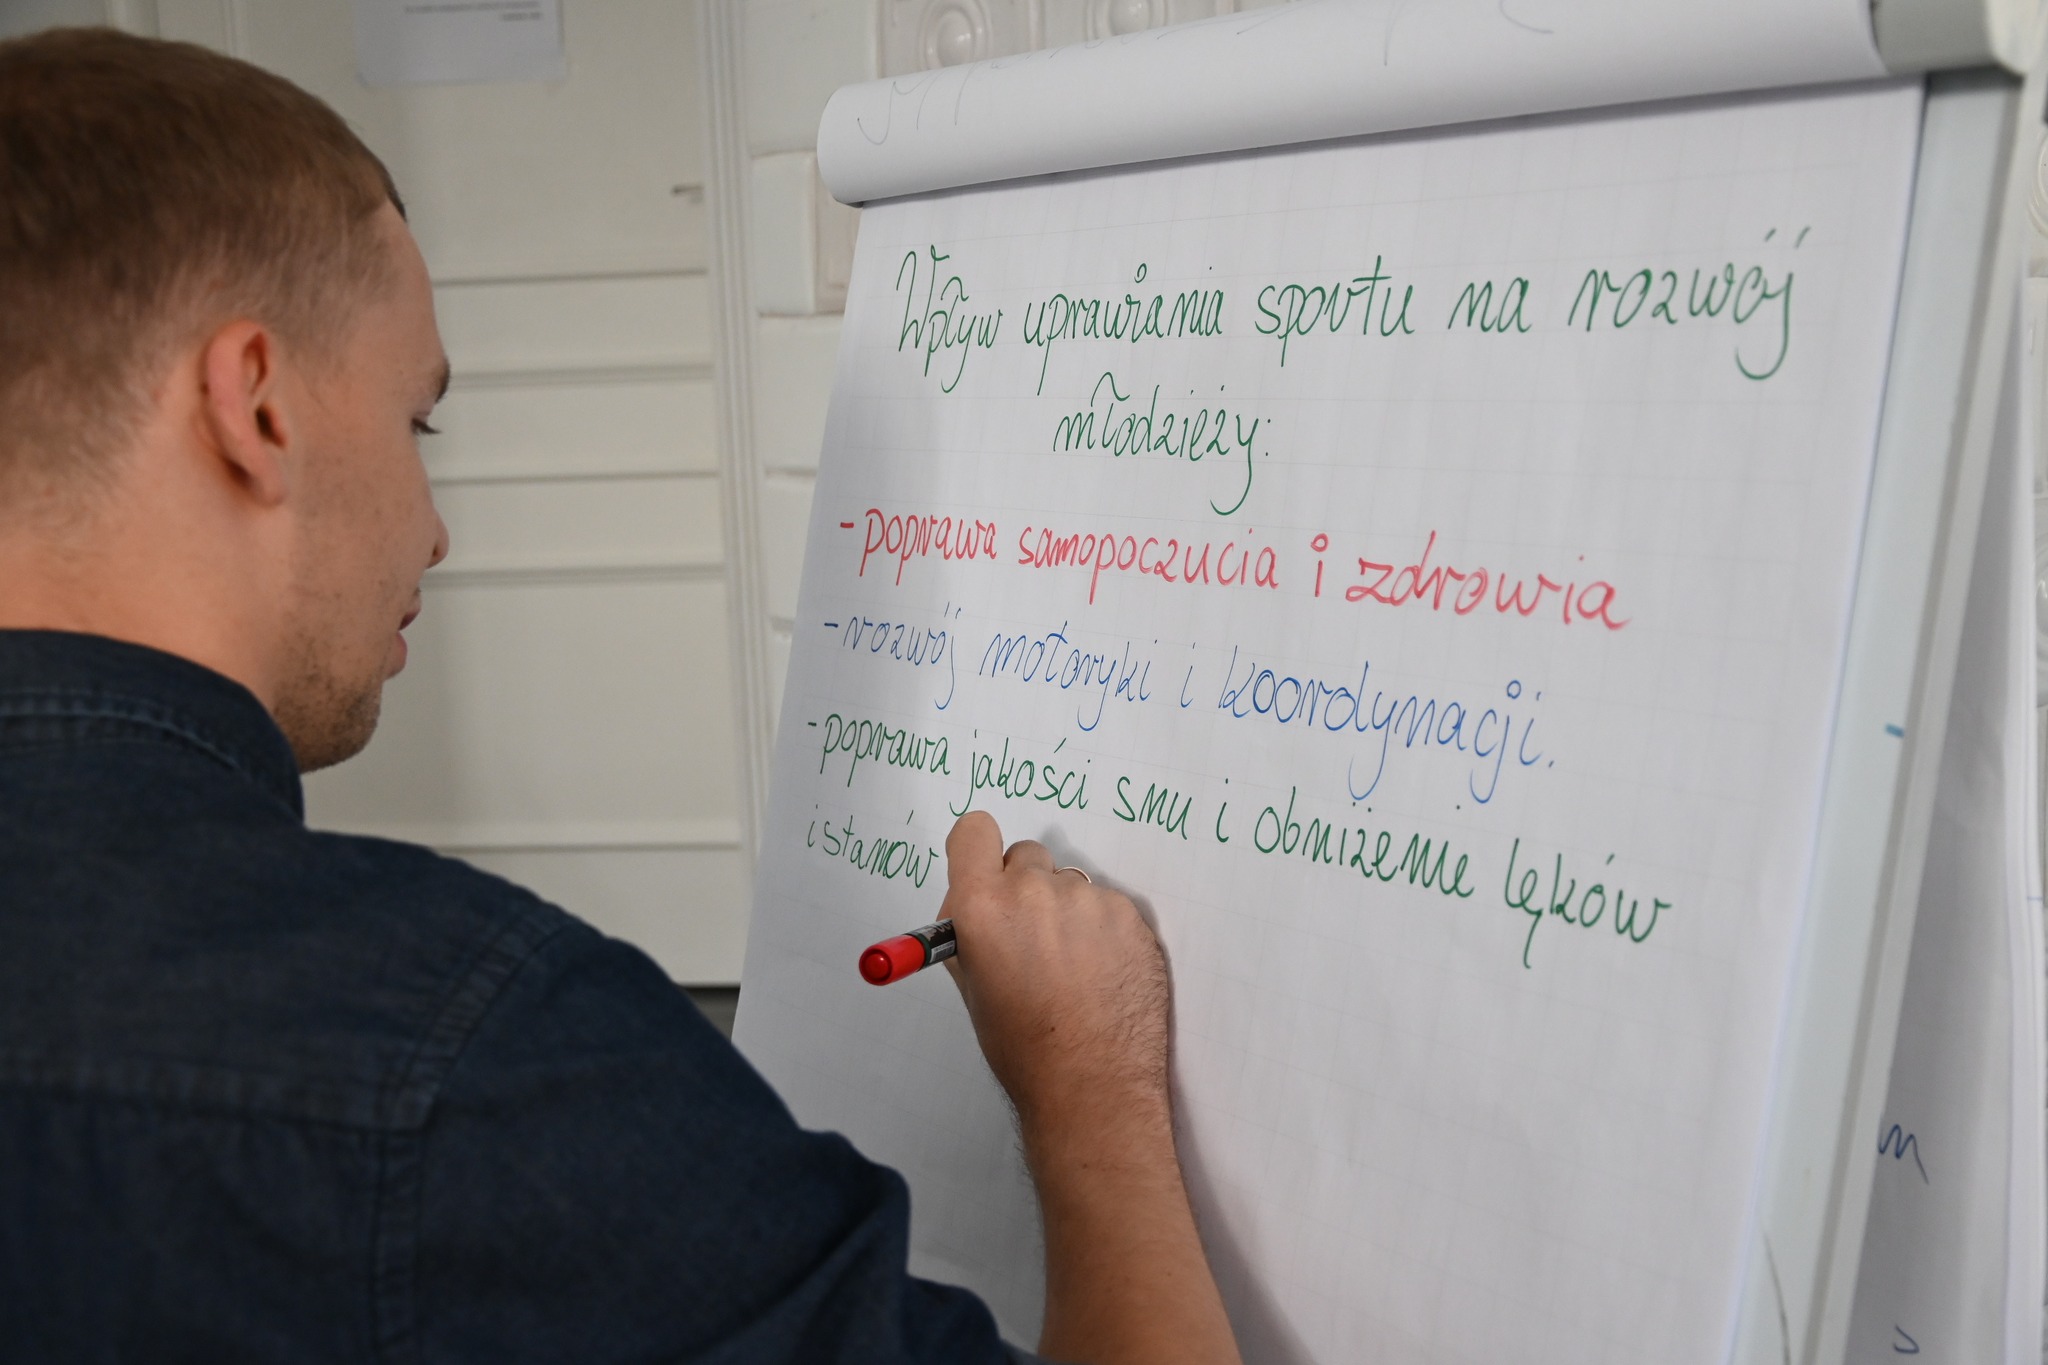 Wpływ uprawiania sportu na rozwój
młodzieży:
- poprawa samopoczucia i zdrowia
- rozwój motoryki i koordynacji.
- poprawa jakości snu i obniżenie lęków
i stanów